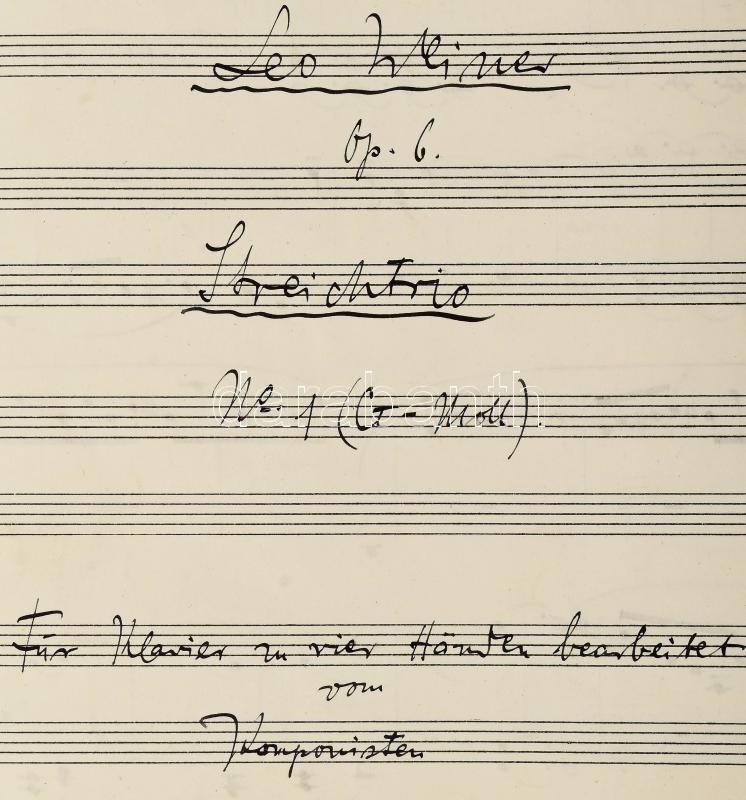 Leo Weiner
Op. 6.
Streichtrio
No. 1 (G-Moll).
darabanth
Für Klavier zu vier Händen bearbeitet
vom
Komponisten